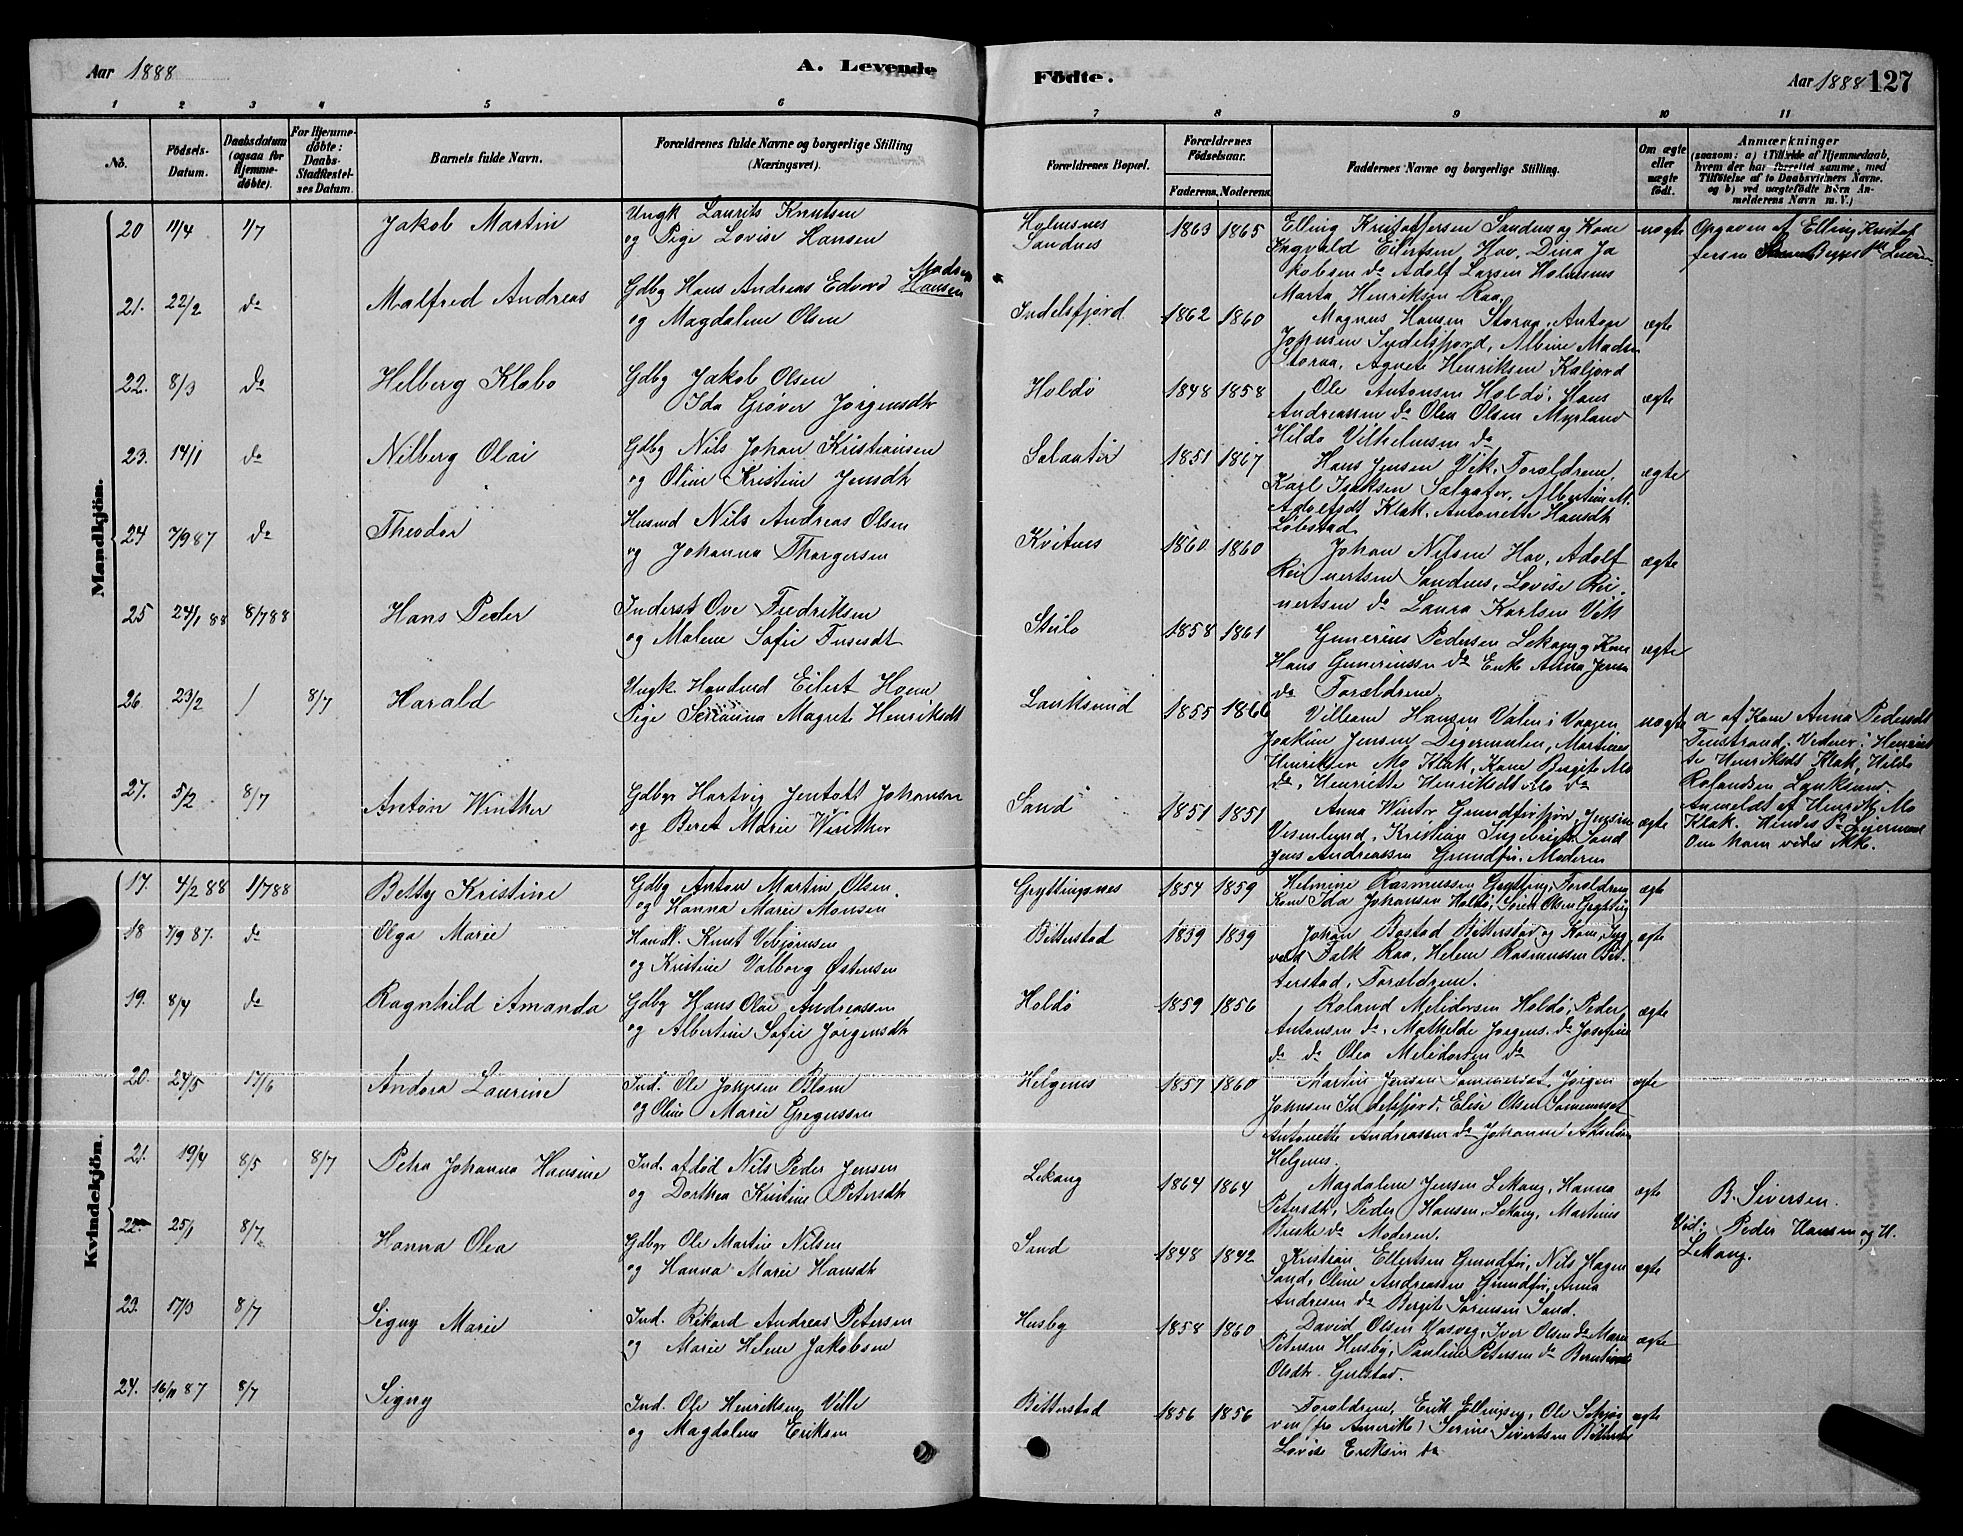 Aar 1888
A. Levende
Födte.
Aar 1888 127
1 2 3 4 5 6 7 8 9 10 11
No.
Födsels-
Datum.
Daabsdatum
(ogsaa for
Hjemme-
döbte).
For Hjemme-
döbte:
Daabs-
Stadfæstel-
ses Datum.
Barnets fulde Navn.
Forældrenes fulde Navne og borgerlige Stilling
(Næringsvei).
Forældrenes Bopæl.
Forældrenes
Födselsaar.
Faderens. Moderens.
Faddernes Navne og borgerlige Stilling.
Om ægte
eller
uægte
födt.
Anmærkninger
(saasom: a) i Tilfælde af Hjemmedaab,
hvem der har forrettet samme, med
Tilföielse af to Daabsvidners Navne.
og b) ved uægtefödte Börn An-
melderens Navn m. V.)
Mandkjön.
20 11/4 1/7 Jakob Martin
Ungk Laurits Knutsen
og Pige Lovise Hansen
Holmsnes
Sandnes
1863 1865
Elling Kristoffersen Sandnes og Kone
Ingvald Eilertsen Hov, Dina Ja
kobsen do Adolf Larsen Holmsnes
Marta Henriksen Raa
uægte
Opgaven af Elling Kristof
fersen
21. 22/2 do Malfred Andreas
Gdbg Hans Andreas Edvard Hansen
Madsen
og Magdalene Olsen
Indelsfjord
1862 1860
Magnus Hansen Storaa, Anton
Johnsen Indelsfjord, Albine Madsen
Storaa, Agnete Henriksen Kaljord
ægte
22. 8/3 do Helberg Klabo
Gdbg Jakob Olsen
Ida Grøver Jørgensdtr
Holdö
1848 1858
Ole Antonsen Holdö, Hans
Andreassen do Olea Olsen Myrland
Hilda Vilhelmsen do
ægte
23. 14/1 do Nilberg Olai
Gdbg Nils Johan Kristiansen
og Oline Kristine Jensdtr
1851 1867
Hans Jensen Vik, Forældrene,
Karl Isaksen Sælgater, Albertine M.
Adolfsdt Klak, Antonette Hansdtr
Löbstad
ægte
24 7/9 87 do Theodor
Husmd Nils Andreas Olsen
og Johanna Thorgersen
Kvitnes
1860 1860
Johan Nilsen Hov, Adolf
Rei nertsen Sandnes, Lovise Rei
nertsen do Laura Karlsen Vik
ægte
25 24/1 88 8/7 88 Hans Peder
Inderst Ove Fredriksen
og Malene Sofie
Stulo
1858 1861
Gunerius Pedersen Lekang og Kone
Hans Guneriussen do Enke Anna Jensen
do Forældrene.
ægte
26. 23/2 / 8/7 Harald
Ungk. Handmd Eilert Hoem
Pige Serianna Magrete Henriksdt
Lanksund
1855 1866
Villiam Hansen Valen i Vaagen
Joakim Jensen Digermulen, Martines
Henriksen Mo Klak, Kone Bergite Mo
do, Henriette Henriksdt Mo do
uægte
a af Kone Anna Pedersdt
Finstrand. Vidner: Henriet
te Henriksdt Klak, Hilda
Rolandsen Lanksund.
Anmeldt af Henrik Mo
Klak. Hendes
Om ham vides ikke.
27. 5/2 8/7 Anton Winther
Gdbgr Hartvig Jentoft Johansen
og Beret Marie Winther
Sand
1851 1851
Anna Winter Grundforfjord, Jensine
Kristian Ingebrigts. Sand
Jens Andreassen Grundfjr. Moderen
ægte
Kvindekjön.
17. 4/2 88 1/7 88 Betty Kristine
Gdbg Anton Martin Olsen
og Hanna Marie Monsen
Gryttingsnes
1854 1859
Helmine Rasmussen Grytting, Forældrene
Kone Ida Johansen Holdö, Sören Olsen Grytting
ægte
18 7/9 87. do Olga Marie
Handl. Knut Vebjörnsen
og Kristine Valborg Østensen
Bitterstad
1859 1859
Johan Bostad Bitterstad og Kone, Ing
vald Falk Raa, Helene Rasmussen Bit
terstad, Forældrene.
ægte
19. 8/4 do Ragnhild Amanda
Gdbg Hans Olai Andreassen
og Albertine Sofie Jorgensdtr
Holdö
1859 1856
Roland Melidorsen Holdö, Peder
Antonsen do, Mathilde Jorgens. do Josefine
do do Olea Melidorsen do
ægte
20. 24/5 17/6 Andora Laurine
Ind. Ole Johnsen Blom
og Oline Marie Gregussen
Helgenes
1857 1860
Martin Jensen Sommerset, Jörgen
Johnsen Indelsfjord, Elise Olsen Sommerset
Antonette Andreassen do Johanne Akselsen
Helgenes.
ægte
21. 19/4 8/5 8/7 Petra Johanna Hansine
Ind. afdöd Nils Peder Jensen
og Dorthea Kristine Petersdtr
Lekang
1864 1864
Magdalene Jensen Lekang, Hanna
Petersdtr, Peder Hansen, Lekang, Martinus
do Moderen.
ægte
B. Siversen.
Vid: Peder Hansen og H.
Lekang.
22. 25/1 8/7 Hanna Olea
Gdbgr Ole Martin Nilsen
og Hanna Marie Hansdtr
Sand
1848 1842
Kristian Ellertsen Grundfjr, Nils Hagen
Sand, Oline Andreassen Grundfjr, Anna
Andresen do Bergite Sörensen Sand.
ægte
23. 17/3 8/7 Signy Marie
Ind. Rikard Andreas Petersen
og Marie Helene Jakobsen
Husby
1858 1860
David Olsen Vasvig, Iver Olsen do Marie
Petersen Husby, Pauline Petersen do
Olsdtr. Gulstad.
ægte
24. 16/11 87 8/7 Signy
Ind. Ole Henriksen Velle
og Magdalene Eriksen
Bitterstad
1856 1856
Forældrene, Erik Ellingsen, Ole
ven (fra Amerika) Serine Sivertsen Bitterstad
Lovise Eriksen do
ægte